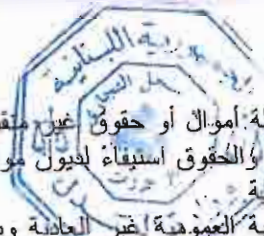 الجمهورية اللبنانية
لة أموال أو حقوق غير منقو
والحقوق استيفاء لديون مو
ية
ية العمومية غير العادية وم